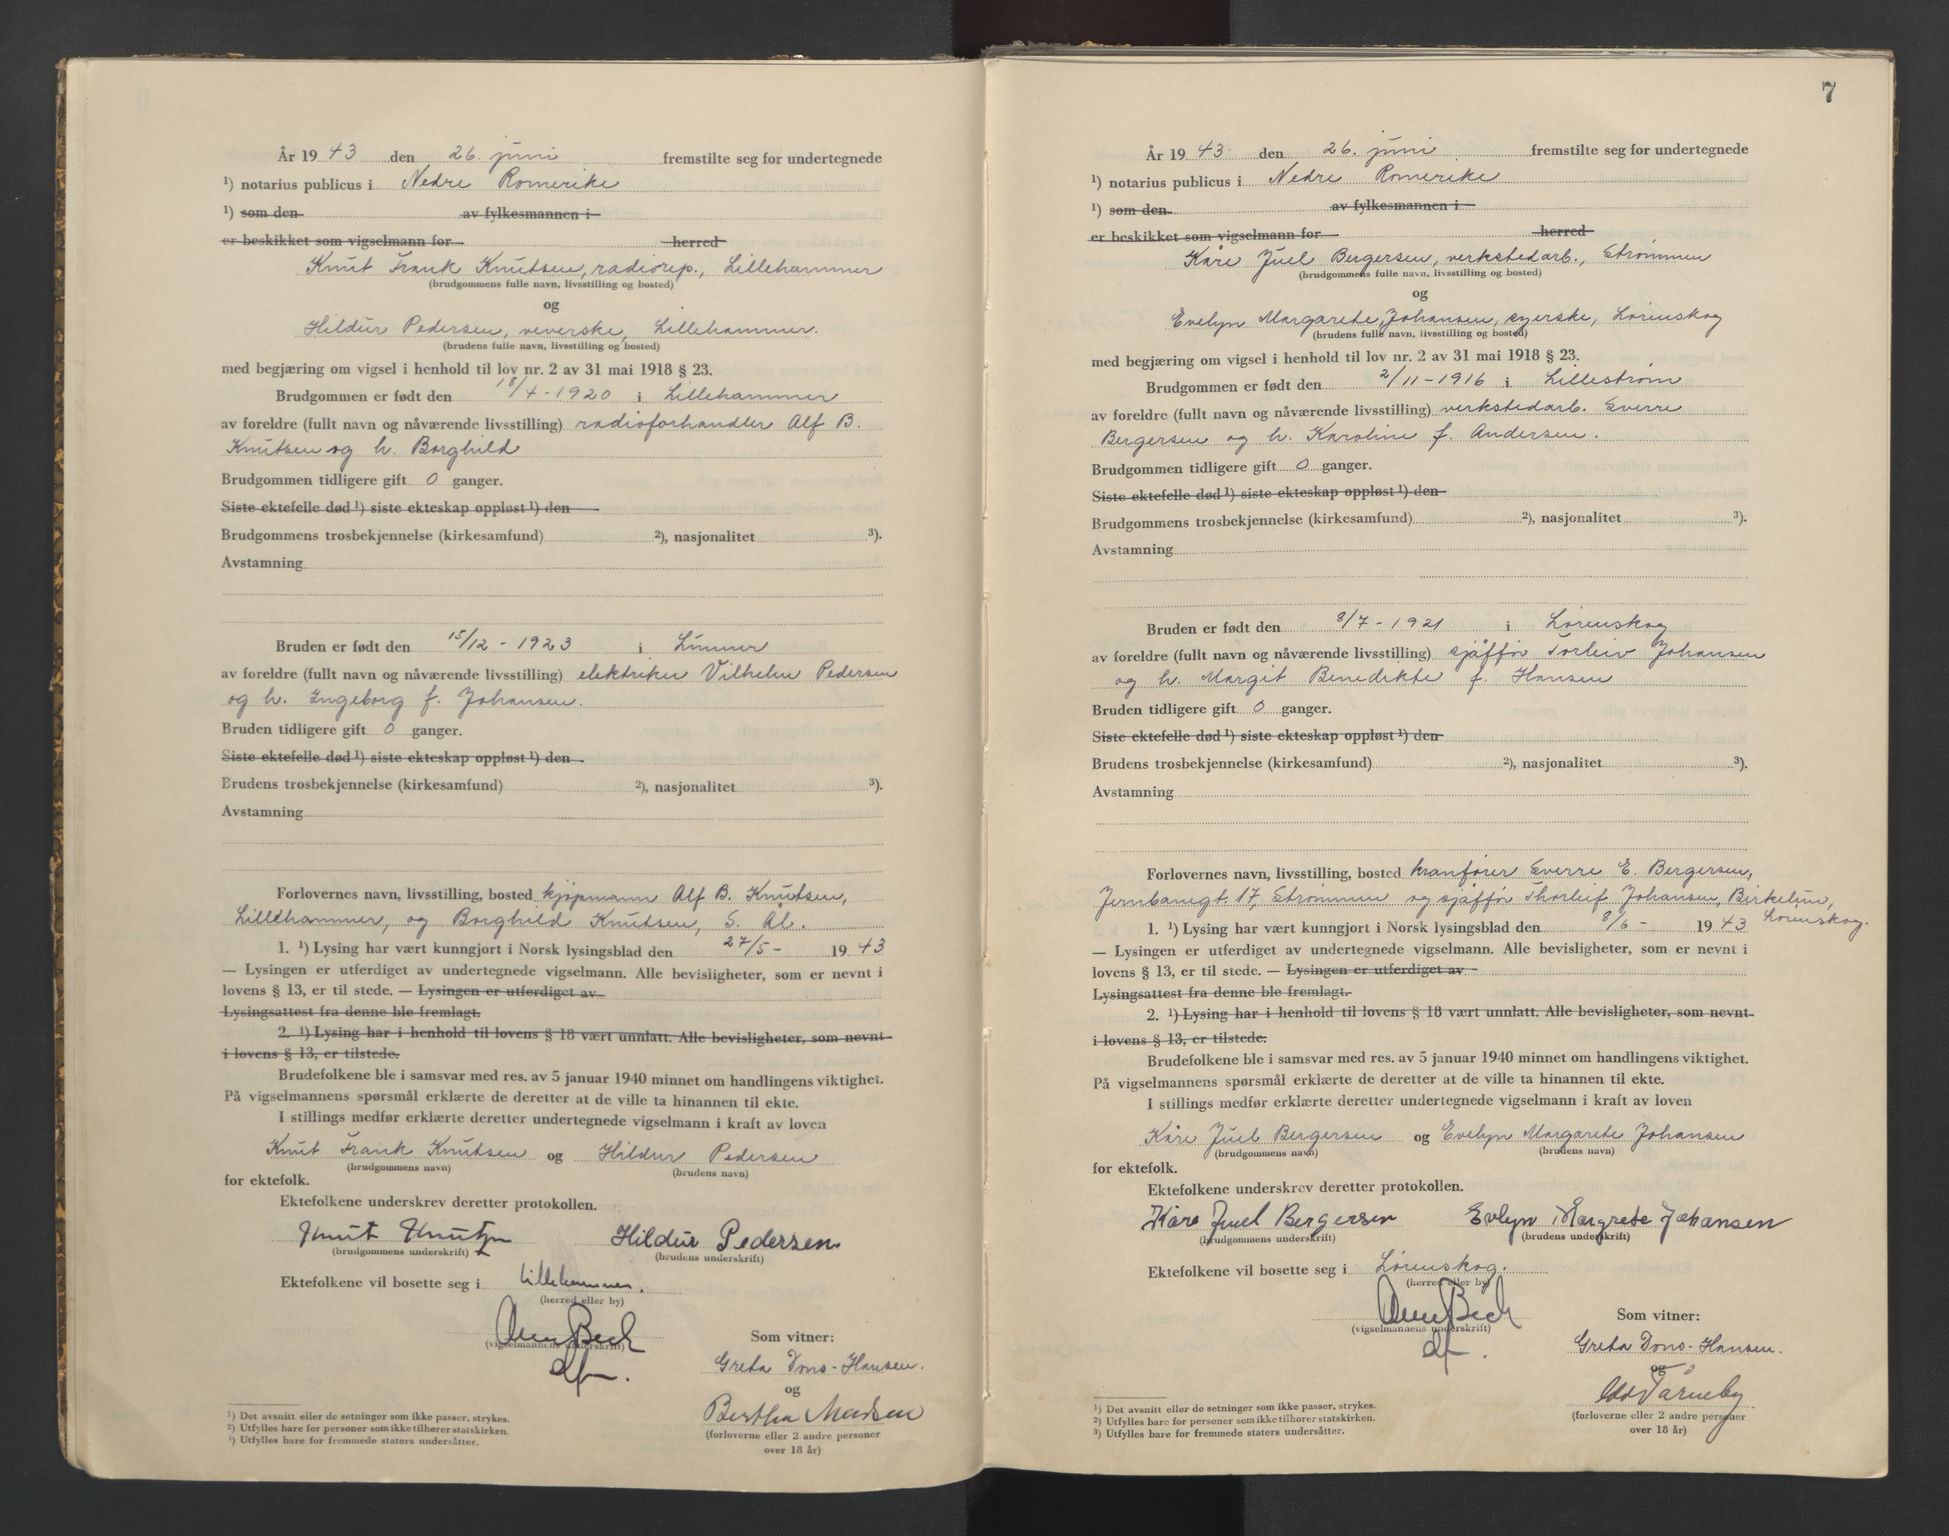 År 19 43 den 26. juni fremstilte seg for undertegnede
¹) notarius publicus i Nedre Romerike
¹) som den av fylkesmannen i
er beskikket som vigselmann for herred
Knut Frank Knutsen, radiorep., Lillehammer
(brudgommens fulle navn, livsstilling og bosted)
og
Hildur Pedersen, veverske, Lillehammer.
(brudens fulle navn, livsstilling og bosted)
med begjæring om vigsel i henhold til lov nr. 2 av 31 mai 1918 § 23.
Brudgommen er født den 18/4 - 1920 i Lillehammer
av foreldre (fullt navn og nåværende livsstilling) radioforhandler Alf B.
Knutsen og h. Borghild
Brudgommen tidligere gift 0 ganger.
Siste ektefelle død ¹) siste ekteskap oppløst ¹) den
Brudgommens trosbekjennelse (kirkesamfund) ²), nasjonalitet ³).
Avstamning
Bruden er født den 15/12 - 1923 i Lunner
av foreldre (fullt navn og nåværende livsstilling) elektriker Vilhelm Pedersen
og h. Ingeborg f. Johansen.
Bruden tidligere gift 0 ganger.
Siste ektefelle død ¹) siste ekteskap oppløst ¹) den
Brudens trosbekjennelse (kirkesamfund) ²), nasjonalitet ³).
Avstamning
Forlovernes navn, livsstilling, bosted kjøpmann Alf B. Knutsen,
Lillehammer, og Borghild Knutsen, S. Ål.
1. ¹) Lysing har vært kunngjort i Norsk lysingsblad den 27/5 - 19 43
— Lysingen er utferdiget av undertegnede vigselmann. Alle bevisligheter, som er nevnt i
lovens § 13, er til stede. — Lysingen er utferdiget av
Lysingsattest fra denne ble fremlagt.
2. ¹) Lysing har i henhold til lovens § 18 vært unnlatt. Alle bevisligheter, som nevnt
i lovens § 13, er tilstede.
Brudefolkene ble i samsvar med res. av 5 januar 1940 minnet om handlingens viktighet.
På vigselmannens spørsmål erklærte de deretter at de ville ta hinannen til ekte.
I stillings medfør erklærte deretter undertegnede vigselmann i kraft av loven
Knut Frank Knutsen og Hildur Pedersen
(brudgommens navn) (brudens navn)
for ektefolk.
Ektefolkene underskrev deretter protokollen.
Knut Knutsen Hildur Pedersen
(brudgommens underskrift) (brudens underskrift)
Ektefolkene vil bosette seg i Lillehammer.
(herred eller by)
Bech
(vigselmannens underskrift) Som vitner:
df.
Greta Dons-Hansen.
og
Bertha Madsen
(forloverne eller 2 andre personer
over 18 år)
¹) Det avsnitt eller de setninger som ikke passer, strykes.
²) Utfylles bare for personer som ikke tilhører statskirken.
³) Utfylles bare for fremmede staters undersåtter.
7
År 19 43 den 26. juni fremstilte seg for undertegnede
¹) notarius publicus i Nedre Romerike
¹) som den av fylkesmannen i
er beskikket som vigselmann for herred
Kåre Juel Bergersen, verkstedarb., Strømmen
(brudgommens fulle navn, livsstilling og bosted)
og
Evelyn Margarete Johansen, syerske, Lørenskog
(brudens fulle navn, livsstilling og bosted)
med begjæring om vigsel i henhold til lov nr. 2 av 31 mai 1918 § 23.
Brudgommen er født den 2/11 - 1916 i Lillestrøm
av foreldre (fullt navn og nåværende livsstilling) verkstedarb. Sverre
Bergersen og h. Karoline f. Andersen.
Brudgommen tidligere gift 0 ganger.
Siste ektefelle død ¹) siste ekteskap oppløst ¹) den
Brudgommens trosbekjennelse (kirkesamfund) ²), nasjonalitet ³).
Avstamning
Bruden er født den 8/7 - 1921 i Lørenskog
av foreldre (fullt navn og nåværende livsstilling) sjåffør Torleiv Johansen
og h. Margit Benedikte f. Hansen
Bruden tidligere gift 0 ganger.
Siste ektefelle død ¹) siste ekteskap oppløst ¹) den
Brudens trosbekjennelse (kirkesamfund) ²), nasjonalitet ³).
Avstamning
Forlovernes navn, livsstilling, bosted kranfører Sverre E. Bergersen,
Jernbanegt. 17, Strømmen og sjåffør Thorleif Johansen, Birkelun,
Lørenskog.
1. ¹) Lysing har vært kunngjort i Norsk lysingsblad den 8/6 - 19 43
— Lysingen er utferdiget av undertegnede vigselmann. Alle bevisligheter, som er nevnt i
lovens § 13, er til stede. — Lysingen er utferdiget av
Lysingsattest fra denne ble fremlagt.
2. ¹) Lysing har i henhold til lovens § 18 vært unnlatt. Alle bevisligheter, som nevnt
i lovens § 13, er tilstede.
Brudefolkene ble i samsvar med res. av 5 januar 1940 minnet om handlingens viktighet.
På vigselmannens spørsmål erklærte de deretter at de ville ta hinannen til ekte.
I stillings medfør erklærte deretter undertegnede vigselmann i kraft av loven
Kåre Juel Bergersen og Evelyn Margarete Johansen
(brudgommens navn) (brudens navn)
for ektefolk.
Ektefolkene underskrev deretter protokollen.
Kåre Juel Bergersen Evelyn Margrete Johansen
(brudgommens underskrift) (brudens underskrift)
Ektefolkene vil bosette seg i Lørenskog.
(herred eller by)
Bech
(vigselmannens underskrift) Som vitner:
df.
Greta Dons-Hansen.
og
Odd Tårneby
(forloverne eller 2 andre personer
over 18 år)
¹) Det avsnitt eller de setninger som ikke passer, strykes.
²) Utfylles bare for personer som ikke tilhører statskirken.
³) Utfylles bare for fremmede staters undersåtter.